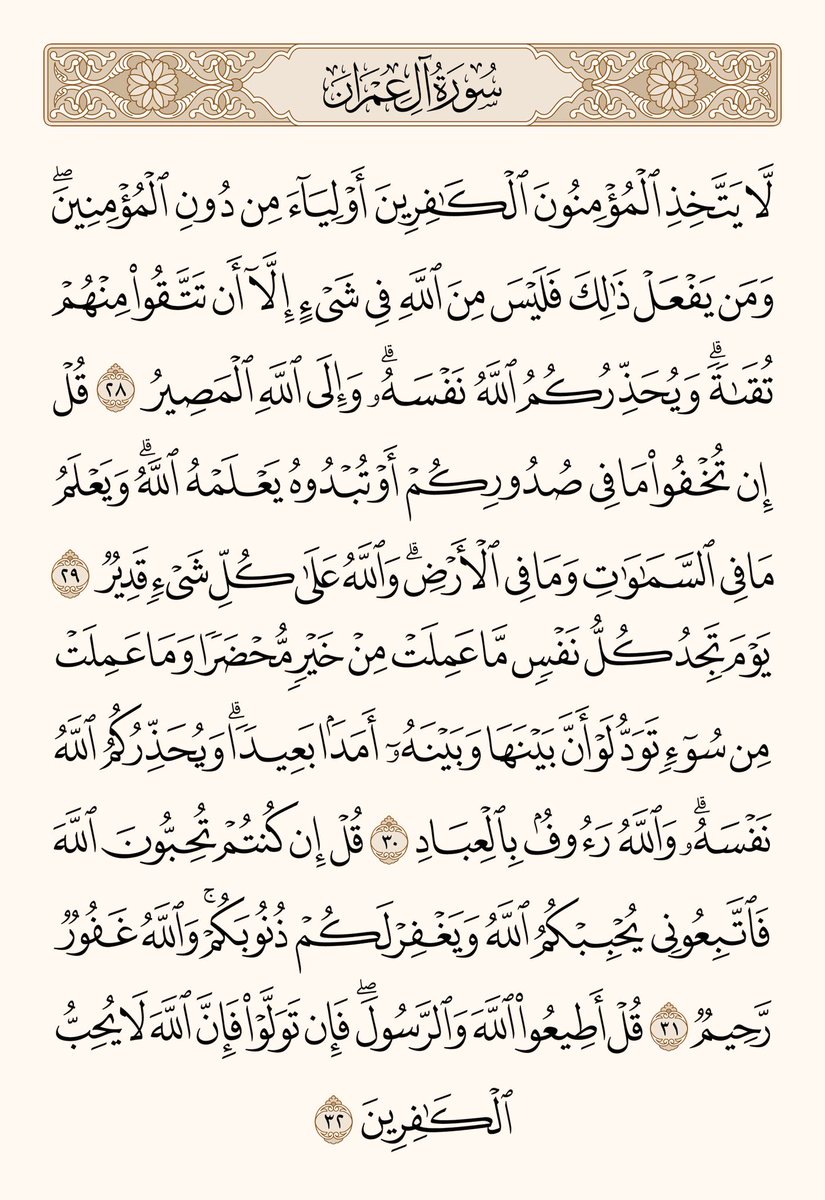 سُورَةُ آلِ عِمْرَانَ
لَّا يَتَّخِذِ ٱلْمُؤْمِنُونَ ٱلْكَـٰفِرِينَ أَوْلِيَآءَ مِن دُونِ ٱلْمُؤْمِنِينَۖ
وَمَن يَفْعَلْ ذَٰلِكَ فَلَيْسَ مِنَ ٱللَّهِ فِى شَىْءٍ إِلَّآ أَن تَتَّقُوا۟ مِنْهُمْ
تُقَىٰةًۗ وَيُحَذِّرُكُمُ ٱللَّهُ نَفْسَهُۥۗ وَإِلَى ٱللَّهِ ٱلْمَصِيرُ ٢٨ قُلْ
إِن تُخْفُوا۟ مَا فِى صُدُورِكُمْ أَوْ تُبْدُوهُ يَعْلَمْهُ ٱللَّهُۗ وَيَعْلَمُ
مَا فِى ٱلسَّمَـٰوَٰتِ وَمَا فِى ٱلْأَرْضِۗ وَٱللَّهُ عَلَىٰ كُلِّ شَىْءٍ قَدِيرٌ ٢٩
يَوْمَ تَجِدُ كُلُّ نَفْسٍ مَّا عَمِلَتْ مِنْ خَيْرٍ مُّحْضَرًا وَمَا عَمِلَتْ
مِن سُوٓءٍ تَوَدُّ لَوْ أَنَّ بَيْنَهَا وَبَيْنَهُۥٓ أَمَدًۢا بَعِيدًاۗ وَيُحَذِّرُكُمُ ٱللَّهُ
نَفْسَهُۥۗ وَٱللَّهُ رَءُوفٌۢ بِٱلْعِبَادِ ٣٠ قُلْ إِن كُنتُمْ تُحِبُّونَ ٱللَّهَ
فَٱتَّبِعُونِى يُحْبِبْكُمُ ٱللَّهُ وَيَغْفِرْ لَكُمْ ذُنُوبَكُمْۚ وَٱللَّهُ غَفُورٌ
رَّحِيمٌ ٣١ قُلْ أَطِيعُوا۟ ٱللَّهَ وَٱلرَّسُولَۖ فَإِن تَوَلَّوْا۟ فَإِنَّ ٱللَّهَ لَا يُحِبُّ
ٱلْكَـٰفِرِينَ ٣٢